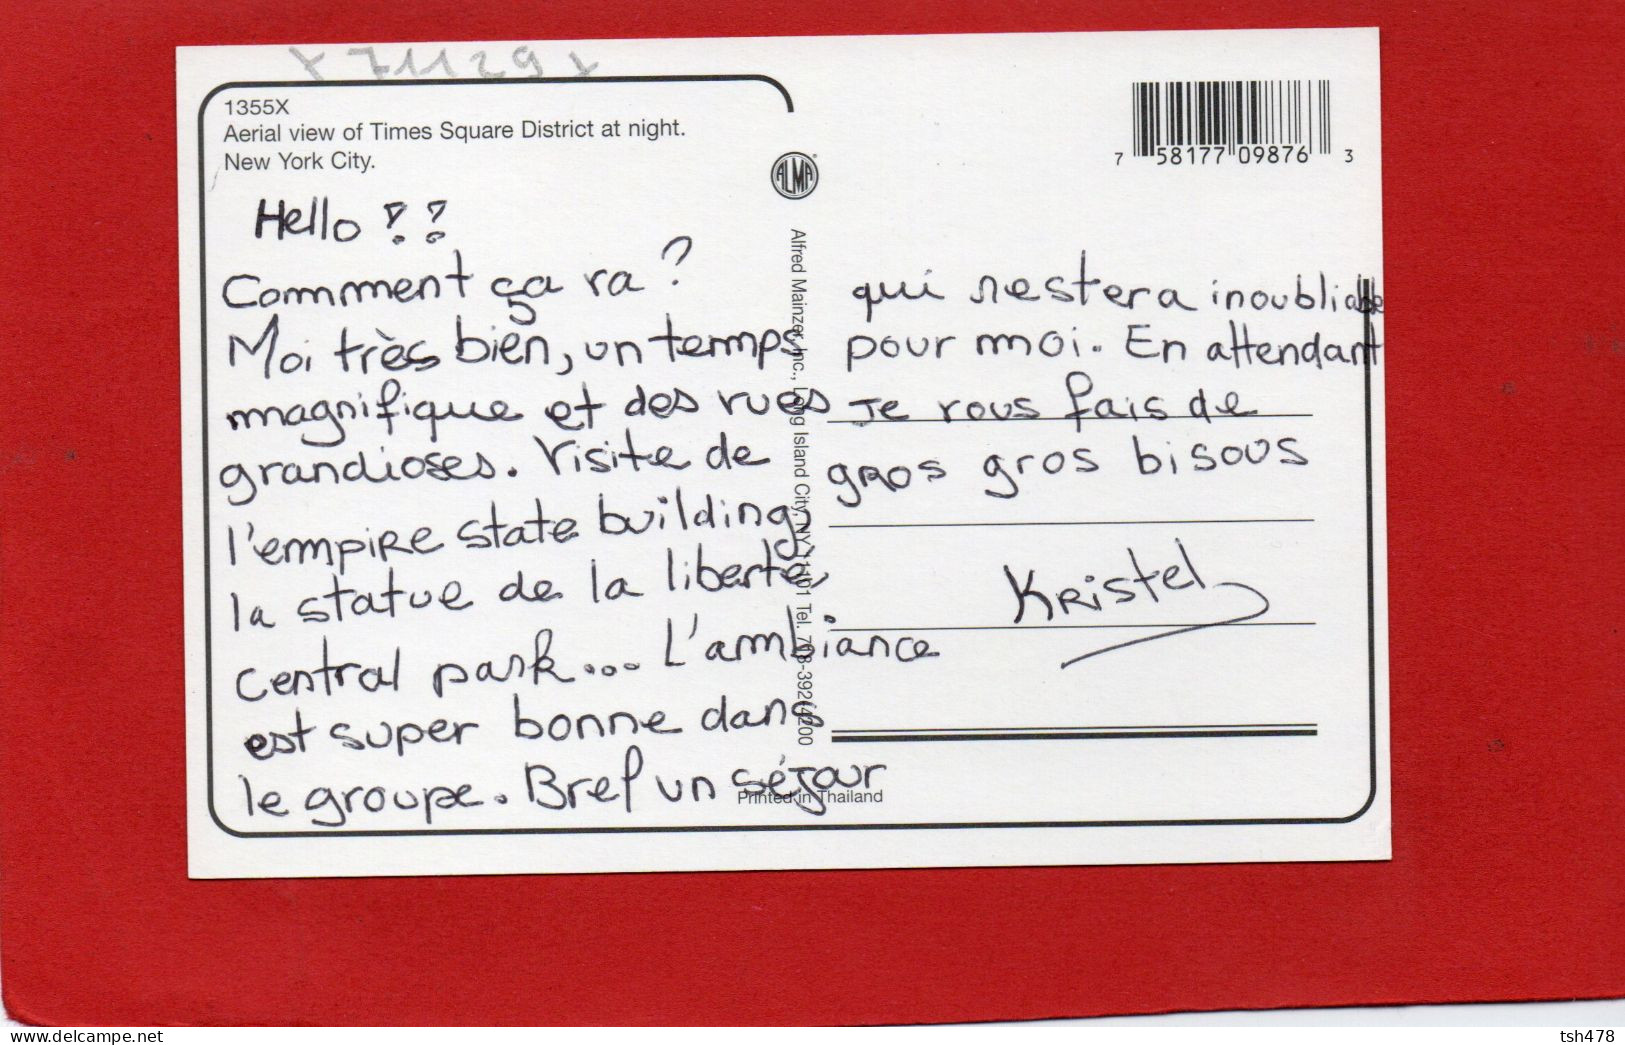 x 71129 x
1355X
Aerial view of Times Square District at night.
New York City.
Hello !!
Comment ça va ?
Moi très bien, un temps
magnifique et des rues
grandioses. Visite de
l'empire state building,
la statue de la liberté,
central park... L'ambiance
est super bonne dans
le groupe. Bref un séjour
qui restera inoubliable
pour moi. En attendant
je vous fais de
gros gros bisous
Kristel
ALMA
Alfred Mainzer, Inc., Long Island City, NY 11101 Tel. 718-392-4200
Printed in Thailand
7 58177 09876 3
tsh478